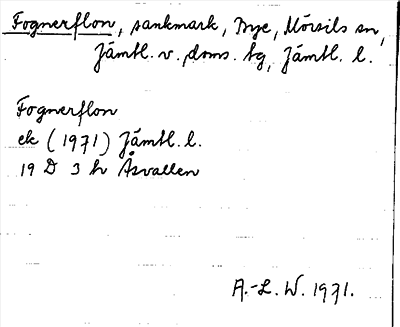 Fognerflon, sankmark, Bye, Mörsils sn,
Jämtl. v. doms. tg, Jämtl. l.
Fognerflon
ek (1971) Jämtl. l.
19 D 3 h Åsvallen
A.-L. W. 1971.